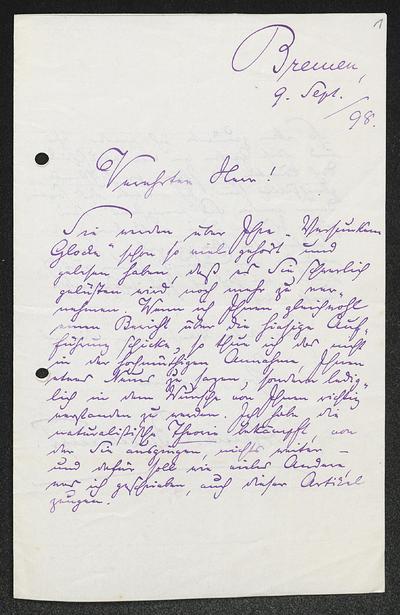 1
Bremen,
9. Sept.
/98.
Verehrter Herr!
Sie werden über Ihre „Versunkene
Glocke" schon so viel gehört und
gelesen haben, daß es Sie schwerlich
gelüsten wird, noch mehr zu ver-
nehmen. Wenn ich Ihnen gleichwohl
einen Bericht über die hiesige Auf-
führung schicke, so thue ich das nicht
in der hochmüthigen Annahme, Ihnen
etwas Neues zu sagen, sondern ledig-
lich in dem Wunsche von Ihnen richtig
verstanden zu werden. Ich habe die
naturalistische Theorie bekämpft, von
der Sie ausgingen, nichts weiter –
und dafür soll wie vieles Andere,
was ich geschrieben, auch dieser Artikel
zeugen.